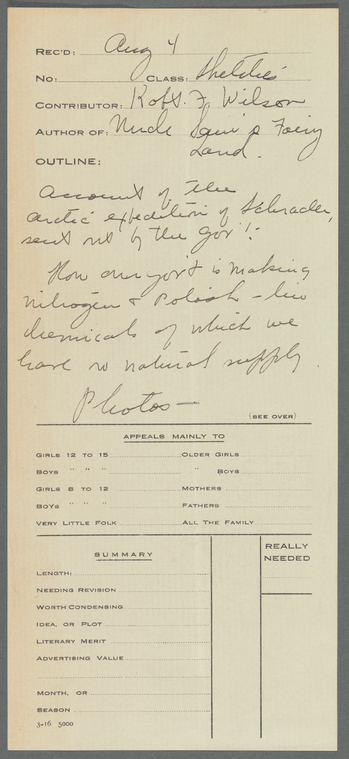 REC'D: Aug 4
NO: CLASS: Sketches
CONTRIBUTOR: Robt. F Wilson
AUTHOR OF: Uncle Sam's Fairy
Land.
OUTLINE:
Account of the
arctic expedition of Schrader,
sent out by the Gov't:
How our gov't is making
nitrogen & Potash - two
chemicals of which we
have no natural supply.
Photos -
(SEE OVER)
APPEALS MAINLY TO
GIRLS 12 TO 15 OLDER GIRLS
BOYS " " " " BOYS
GIRLS 8 TO 12 MOTHERS
BOYS " " " FATHERS
VERY LITTLE FOLK ALL THE FAMILY
SUMMARY REALLY
NEEDED
LENGTH:
NEEDING REVISION
WORTH CONDENSING
IDEA, OR PLOT
LITERARY MERIT
ADVERTISING VALUE
MONTH, OR
SEASON
3-16 5000